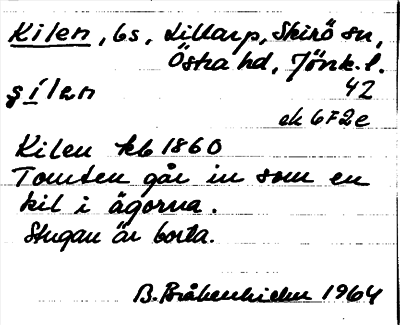 Kilen, bs, Lillarp, Skirö sn,
Östra hd, Jönk. l.
şílạn 42
ek 6F2e
Kilen kb 1860
Tomten går in som en
kil i ägorna.
Stugan är borta.
B. Bråkenhielm 1964